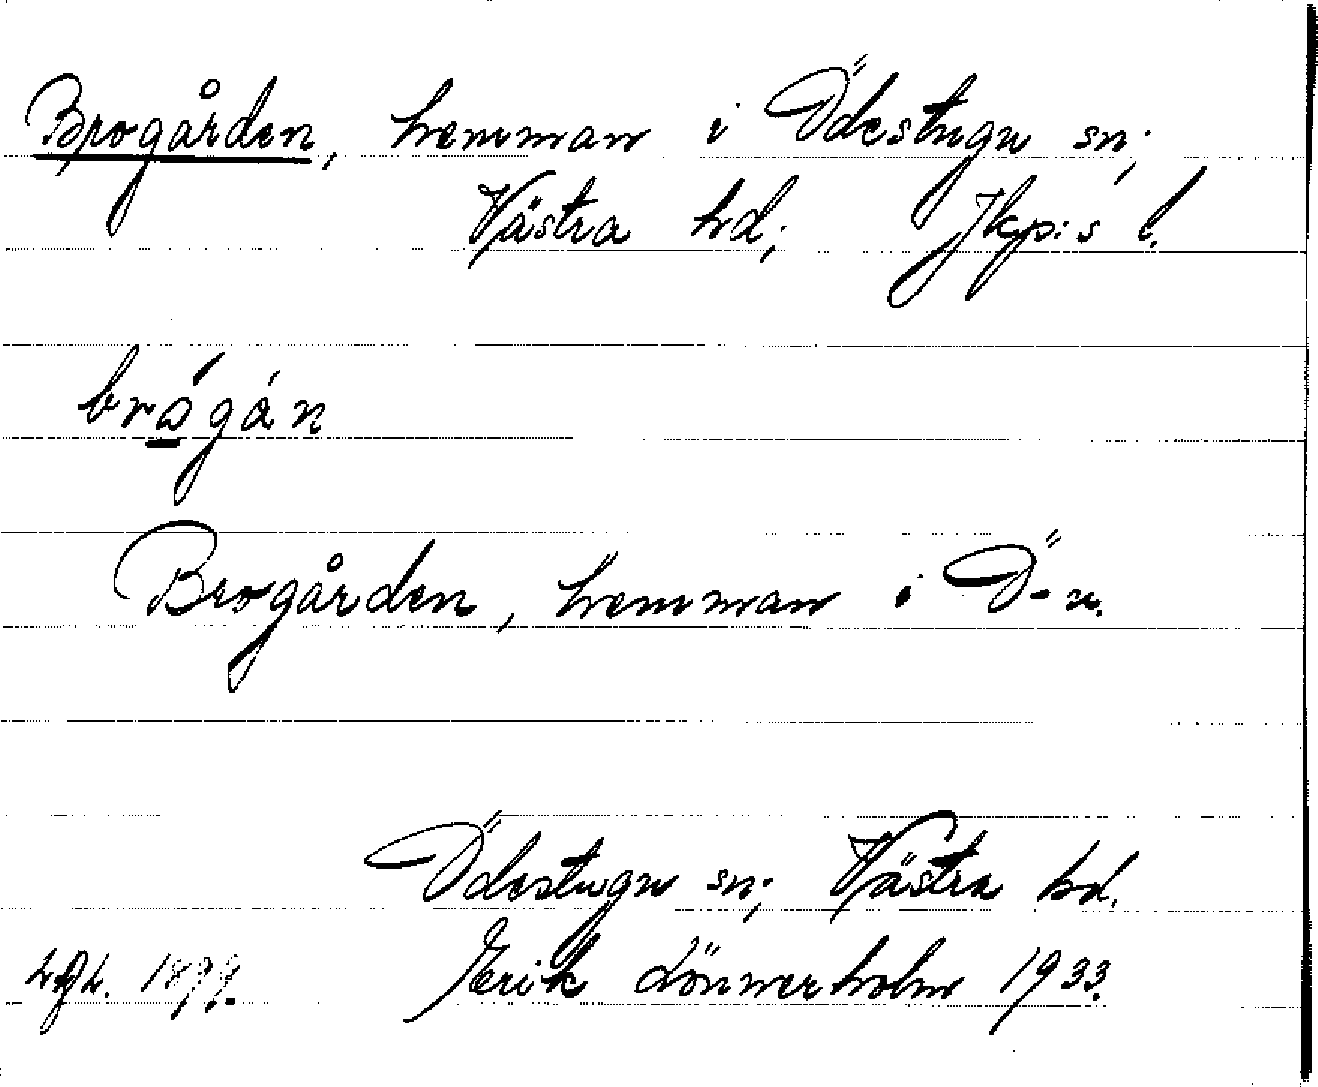 Brogården, hemman i Ödestugu sn;
Västra hd; Jkp:s l.
brógán
Brogården, hemman i Ö-u.
Ödestugu sn; Västra hd.
Erik Lönnerholm 1933.